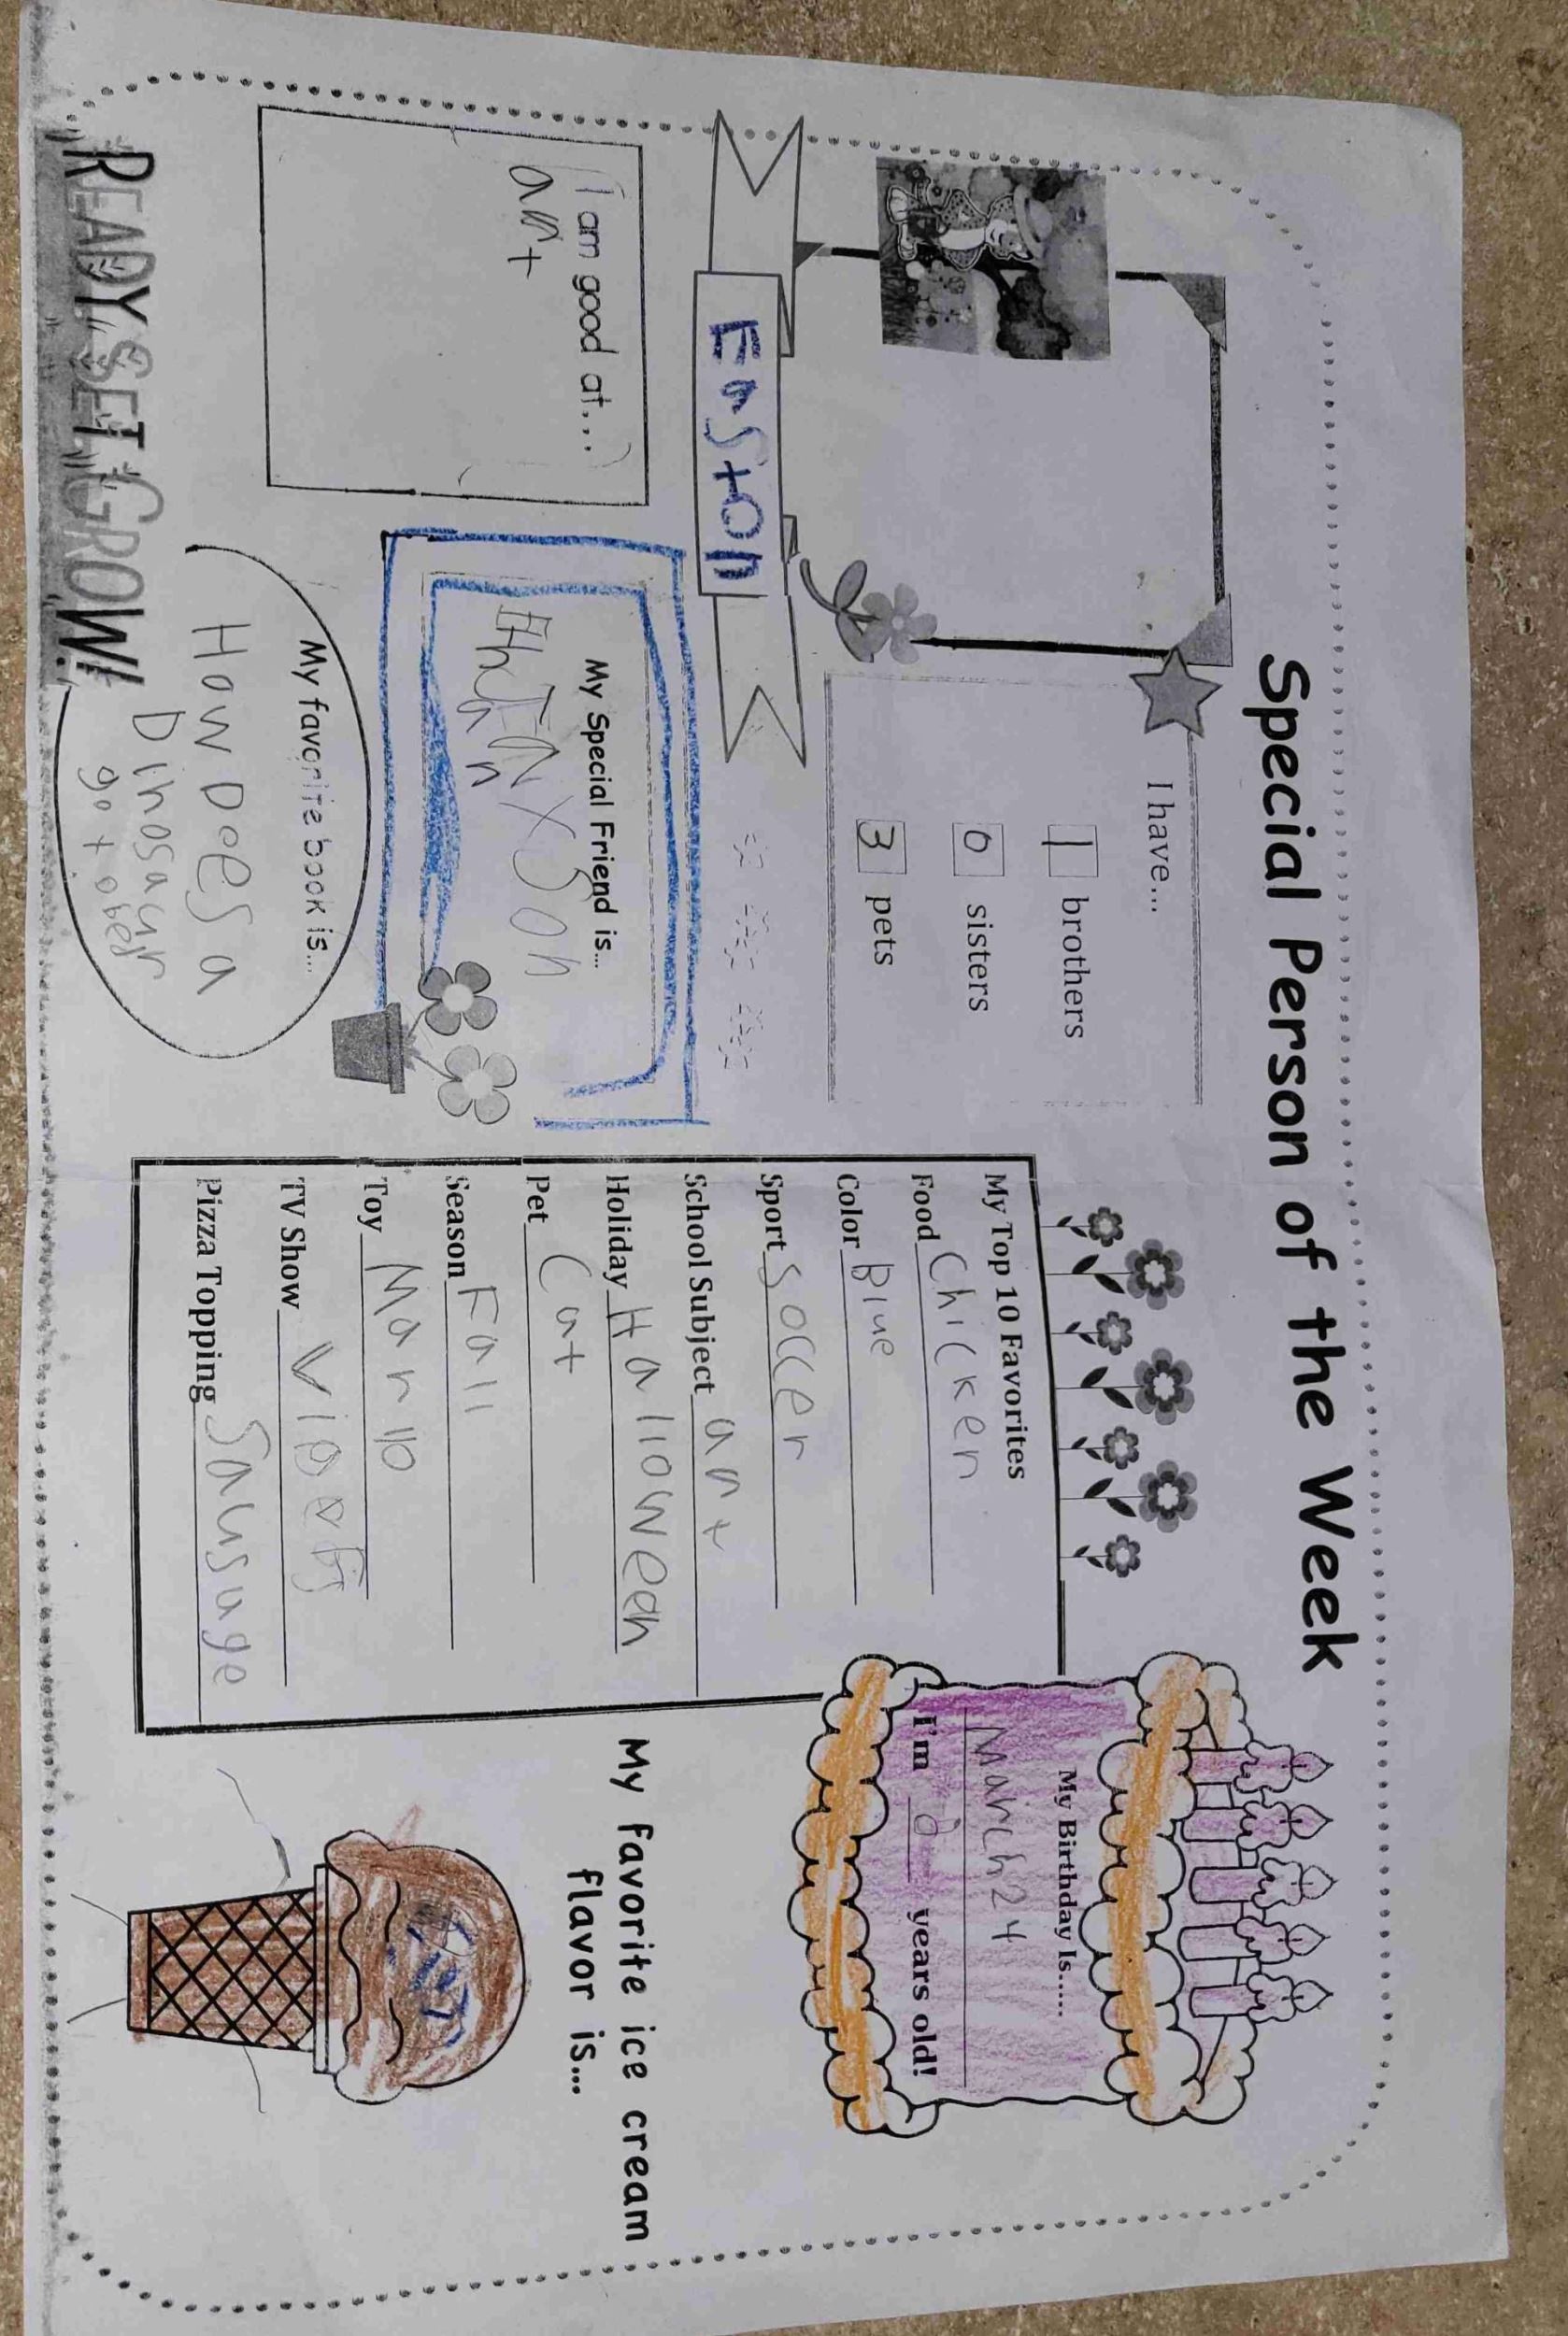 Special Person of the Week
I have...
1 brothers
0 sisters
3 pets
Easton
I am good at...
art
My Special Friend is...
Jaxson
Ethan
My favorite book is...
How Does a
Dinosaur
go t obed
READY SET GROW!
My Top 10 Favorites
Food Chicken
Color Blue
Sport Soccer
School Subject art
Holiday Halloween
Pet Cat
Season Fall
Toy Mario
TV Show
Pizza Topping Sausage
My Birthday Is.....
March 24
I'm years old!
My favorite ice cream
flavor is...